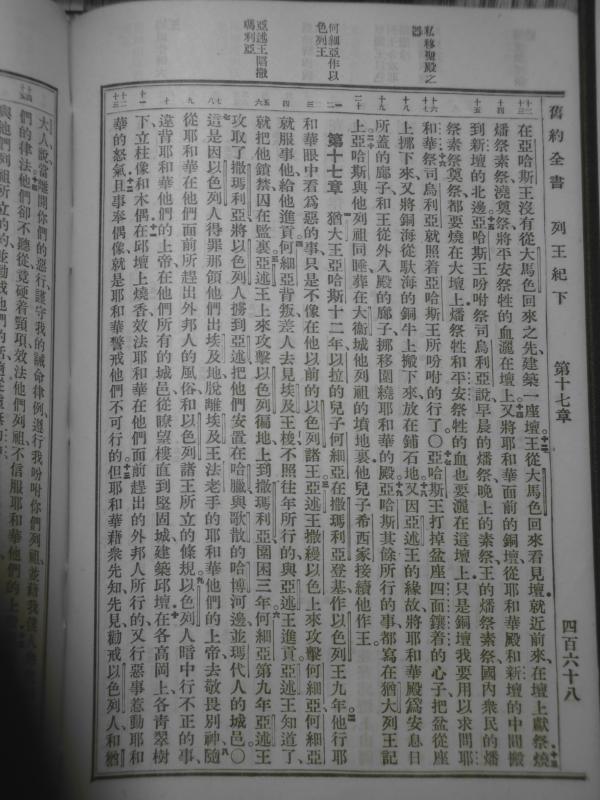 舊約全書 列王紀下 第十七章 四百六十八
私移聖殿之器
何細亞作以色列王
亞述王陷撒瑪利亞
在亞哈斯王沒有從大馬色回來之先建築一座壇王從大馬色回來看見壇就近前來在壇上獻祭燒
燔祭素祭澆奠祭將平安祭牲的血灑在壇上又將耶和華面前的銅壇從耶和華殿和新壇的中間搬
到新壇的北邊亞哈斯王吩咐祭司烏利亞說早晨的燔祭晚上的素祭王的燔祭素祭國內衆民的燔
祭素祭奠祭都要燒在大壇上燔祭牲和平安祭牲的血也要灑在這壇上只是銅壇我要用以求問耶
和華祭司烏利亞就照着亞哈斯王所吩咐的行了〇亞哈斯王打掉盆座四面鑲着的心子把盆從座
上挪下來又將銅海從馱海的銅牛上搬下來放在鋪石地又因亞述王的緣故將耶和華殿爲安息日
所蓋的廊子和王從外入殿的廊子挪移圍繞耶和華的殿亞哈斯其餘所行的事都寫在猶大列王記
上亞哈斯與他列祖同睡葬在大衞城他列祖的墳地裏他兒子希西家接續他作王
第十七章 猶大王亞哈斯十二年以拉的兒子何細亞在撒瑪利亞登基作以色列王九年他行耶
和華眼中看爲惡的事只是不像在他以前的以色列諸王亞述王撒縵以色上來攻擊何細亞何細亞
就服事他給他進貢何細亞背叛差人去見埃及王梭不照往年所行的與亞述王進貢亞述王知道了
就把他鎖禁囚在監裏亞述王上來攻擊以色列徧地上到撒瑪利亞圍困三年何細亞第九年亞述王
攻取了撒瑪利亞將以色列人擄到亞述把他們安置在哈臘與歌散的哈博河邊並瑪代人的城邑〇
這是因以色列人得罪那領他們出埃及地脫離埃及王法老手的耶和華他們的上帝去敬畏別神隨
從耶和華在他們面前所趕出外邦人的風俗和以色列諸王所立的條規以色列人暗中行不正的事
違背耶和華他們的上帝在他們所有的城邑從瞭望樓直到堅固城建築邱壇在各高岡上各青翠樹
下立柱像和木偶在邱壇上燒香效法耶和華在他們面前趕出的外邦人所行的又行惡事惹動耶和
華的怒氣且事奉偶像就是耶和華警戒他們不可行的但耶和華藉衆先知先見勸戒以色列人和猶
大人說當離開你們的惡行謹守我的誡命律例遵行我吩咐你們列祖並藉我僕人
們的律法他們卻不聽從竟硬着頸項效法他們列祖不信服耶和華他們的上